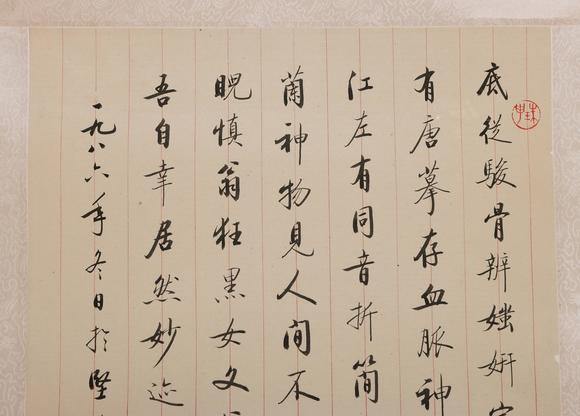 底從駿骨辨媸妍
有唐摹存血脈神
江左有同音折簡
蘭神物見人間不
睨慎翁狂黑女文
吾自幸居然妙迹
一九八六年冬日於堅